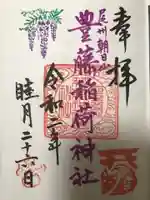 奉拝
尾州朝日
豊藤稲荷神社
令和二年
睦月二十六日